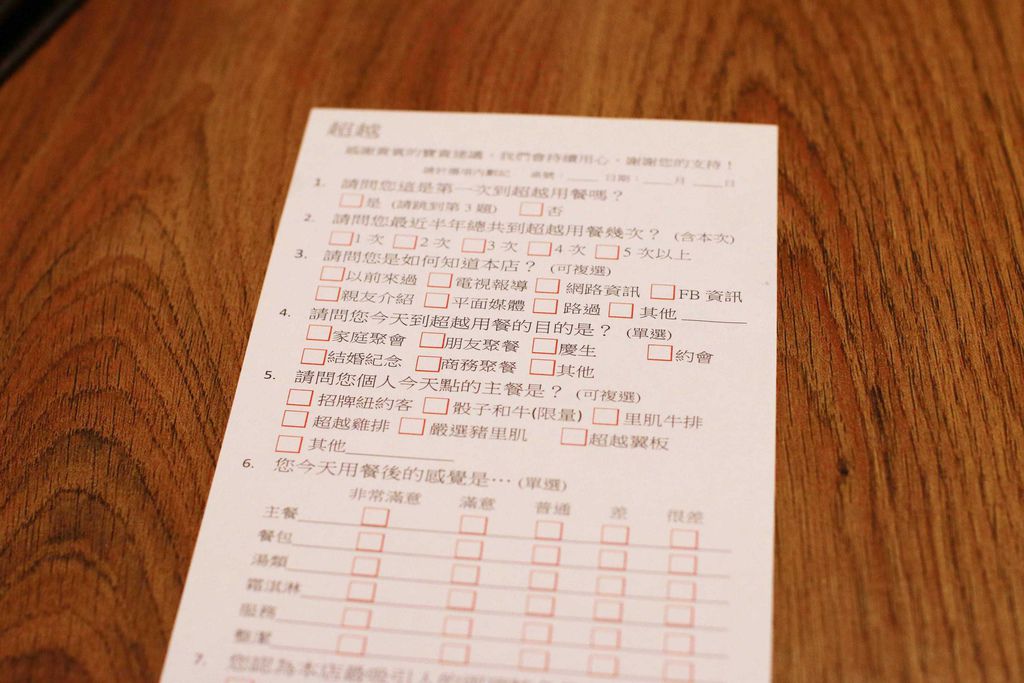 超越
感謝貴賓的寶貴建議，我們會持續用心，謝謝您的支持！
請於選項內勾記 桌號：____ 日期：____月 ____日
1. 請問您這是第一次到超越用餐嗎？
□是 (請跳到第 3 題) □否
2. 請問您最近半年總共到超越用餐幾次？ (含本次)
□1 次 □2 次 □3 次 □4 次 □5 次以上
3. 請問您是如何知道本店？ (可複選)
□以前來過 □電視報導 □網路資訊 □FB 資訊
□親友介紹 □平面媒體 □路過 □其他 ________
4. 請問您今天到超越用餐的目的是？ (單選)
□家庭聚會 □朋友聚餐 □慶生 □約會
□結婚紀念 □商務聚餐 □其他
5. 請問您個人今天點的主餐是？ (可複選)
□招牌紐約客 □骰子和牛(限量) □里肌牛排
□超越雞排 □嚴選豬里肌 □超越翼板
□其他__________
6. 您今天用餐後的感覺是… (單選)
非常滿意 滿意 普通 差 很差
主餐 □ □ □ □ □
餐包 □ □ □ □ □
湯類 □ □ □ □ □
霜淇淋 □ □ □ □ □
服務 □ □ □ □ □
整潔 □ □ □ □ □
7. 您認為本店最吸引人的